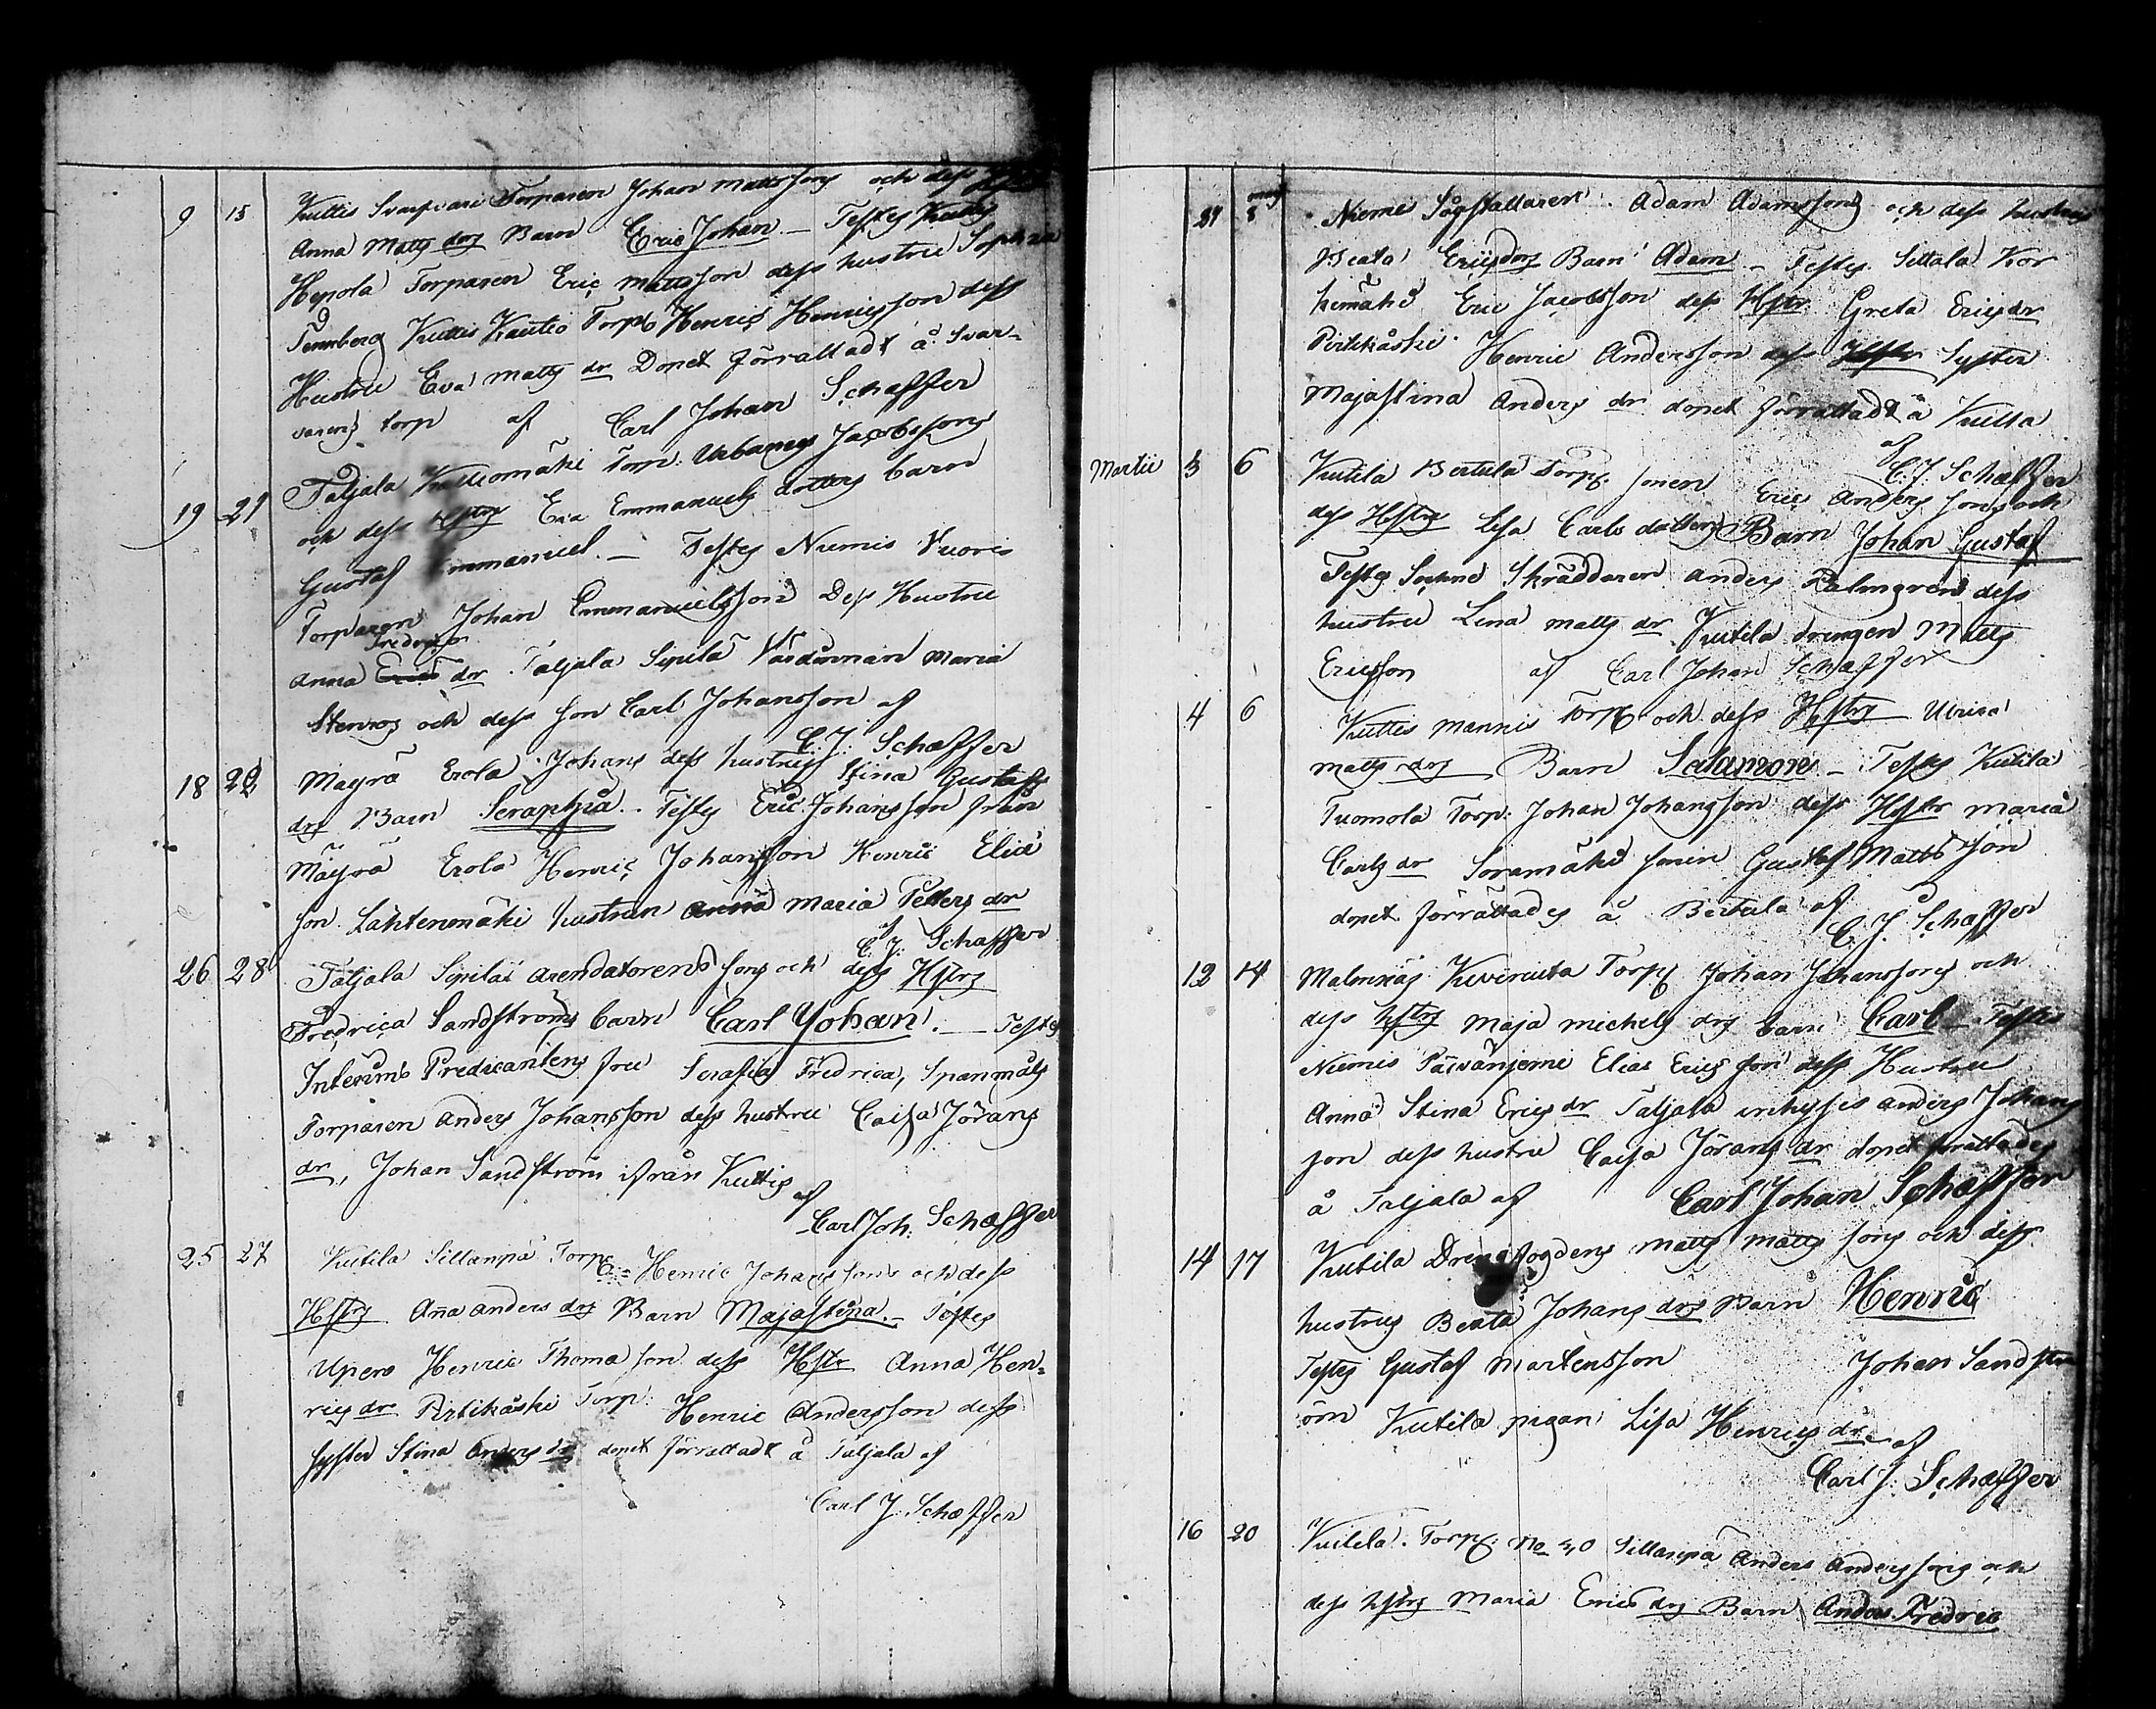 9 15 Kuttis Svarfvari Torparen Johan Mattssons och dess
Anna Matts drs Barn Eric Johan – Testes Kuttis
Hepola Torparen Eric Mattsson dess hustru Sophia
Tennberg Kuttis Kautio Torp Henric Henricsson dess
Hustru Eva Matts dr Dopet förrättadt å Svar-
varens torp af Carl Johan Schæffer
19 21 Taljala Torp: Urbanus Jacobssons
och dess Hstrs Eva Emmanuels dotters barn
Gustaf Emmanuel. – Testes Niemis Vuoris
Torparen Johan Emmanuelsson Dess Hustru
Fredrics
Anna dr Taljala Sipilä Värdinnan Maria
Stenros och dess son Carl Johansson af
C. J. Schæffer
18 22 Mäyrä Erola Johans dess hustrus Stina Gustafs
drs Barn Seraphia. Testes Eric Johansson från
Mäyrä Erola Henric Johansson Henric Elia
son Lähtenmäki hustrun Anna Maria Petters dr
af C. J. Schæffer
26 28 Taljala Sipilä Arendatorens sons och dess Hstrs
Fredrica Sandströms barn Carl Johan. – Testes
Interims Predicantens fru Serafia Fredrica, Spanmåls
Torparen Anders Johansson dess hustru Caisa Jörans
dr, Johan Sandström ifrån Kuttis
af
Carl Joh. Schæffer
25 27 Kutila Sillanpä Torp Henric Johanssons och dess
Hstrs Anna Anders drs Barn Majastina. – Testes
Upero Henric Thomason dess Hstr Anna Hen-
rics dr Pirtikåski Torp. Henric Andersson dess
syster Stina Anders dr dopet förrättadt å Taljala af
Carl J. Schæffer
Niemi Adam Adamssons och dess hustrus
Beata Ericsdrs Barn Adam – Testes Sittala Kor
kemäki Eric Jacobsson dess Hstr Greta Erics dr
Pirtikåski Henric Andersson dess Hstr Syster
Majastina Anders dr dopet förrättadt å Kutila
af
C. J. Schæffer
Martii 3 6 Kutila Bertula Torp. sonen Eric Anderssons och
dess Hstrs Lisa Carls dotters Barn Johan Gustaf
Testes Sochne Skräddaren Anders Palmgren dess
hustru Lena Matts dr Kutila drengen Matts
Ericsson af Carl Johan Schæffer
4 6 Kuttis Mannis Torp och dess Hstrs Ulrica
Matts drs Barn Salamon – Testes Kutila
Tuomola Torp: Johan Johansson dess Hstr Maria
Carls dr Soramäki sonen Gustaf Mattsson
dopet förrättades å Bertula af
C. J. Schæffer
12 14 Malmnäs Torp Johan Johanssons och
dess hstrs Maja Michels drs barn Carl – Testes
Niemis Päivänjemi Elias Ericsson dess Hustru
Anna Stina Erics dr Taljala inhyses Anders Johans
son dess hustru Caisa Jörans dr dopet förättades
å Taljala af Carl Johan Schæffer
14 17 Kutila Drengfogdens Matts Matts sons och dess
hustrus Beata Johans drs Barn Henric
Testes Gustaf Mårtensson Johan Sandstr
öm Kutila pigan Lisa Henrics dr af
Carl J. Schæffer
16 20 Kutila Torp. No 30 Sillanpä Anders Anderssons och
dess hstrs Maria Erics drs Barn Anders Fredric